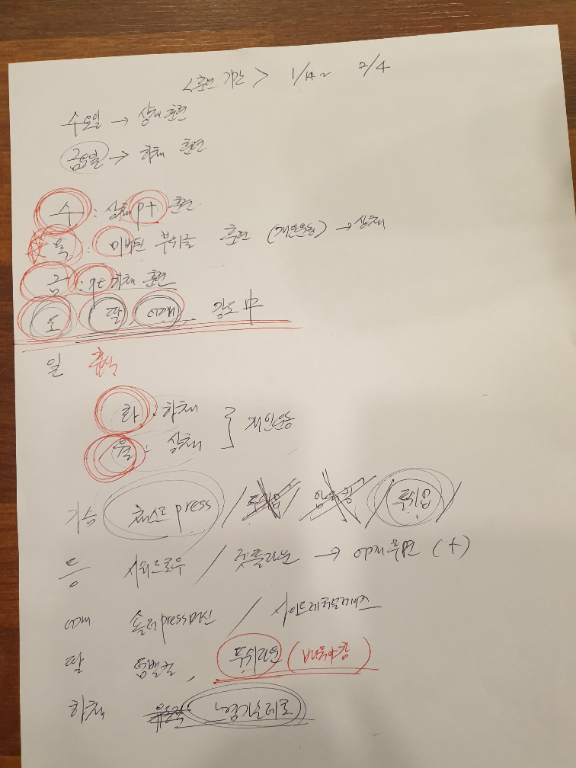 <훈련 기간> 1/14~ 2/4
수요일 → 상체 훈련
금요일 → 하체 훈련
수 : 상체 pt 훈련
목 : 부위를 훈련 (개인운동) → 상체
금 : pt 하체 훈련
토 팔, 어깨 강도 中
일 휴식
화 : 하체
월 : 상체 } 개인운동
가슴 체스트 press / / / 푸쉬업 /
등 시티드로우 / 렛풀다운 → 어깨 후면 (+)
어깨 숄더 press머신 / 사이드레터럴레이즈
팔 덤벨컬, 푸쉬다운
하체